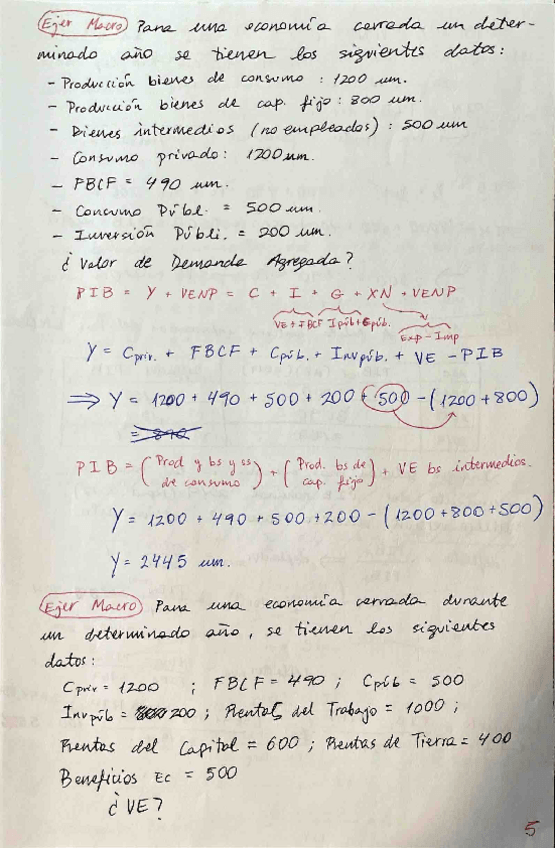 Ejer Macro Para una economía cerrada un deter-
minado año se tienen los siguientes datos:
- Producción bienes de consumo : 1200 um.
- Producción bienes de cap. fijo : 800 um.
- Bienes intermedios (no empleados) : 500 um
- Consumo privado: 1200 um.
- FBCF = 490 um.
- Consumo Públ. = 500 um.
- Inversión Públi. = 200 um.
¿ Valor de Demanda Agregada ?
PIB = Y + VENP = C + I + G + XN + VENP
VE + FBCF Ipúb + Gpúb.
Exp - Imp
Y = Cpriv. + FBCF + Cpúb. + Inv púb. + VE - PIB
⇒ Y = 1200 + 490 + 500 + 200 + 500 - (1200 + 800)
PIB = (Prod y bs y ss de consumo) + (Prod. bs de cap. fijo) + VE bs intermedios.
Y = 1200 + 490 + 500 + 200 - (1200 + 800 + 500)
Y = 2445 um.
Ejer Macro Para una economía cerrada durante
un determinado año, se tienen los siguientes
datos:
Cpriv = 1200 ; FBCF = 490 ; Cpúb = 500
Inv púb = 200 ; Rentas del Trabajo = 1000 ;
Rentas del Capital = 600 ; Rentas de Tierra = 400
Beneficios Ec = 500
¿ VE ?
5